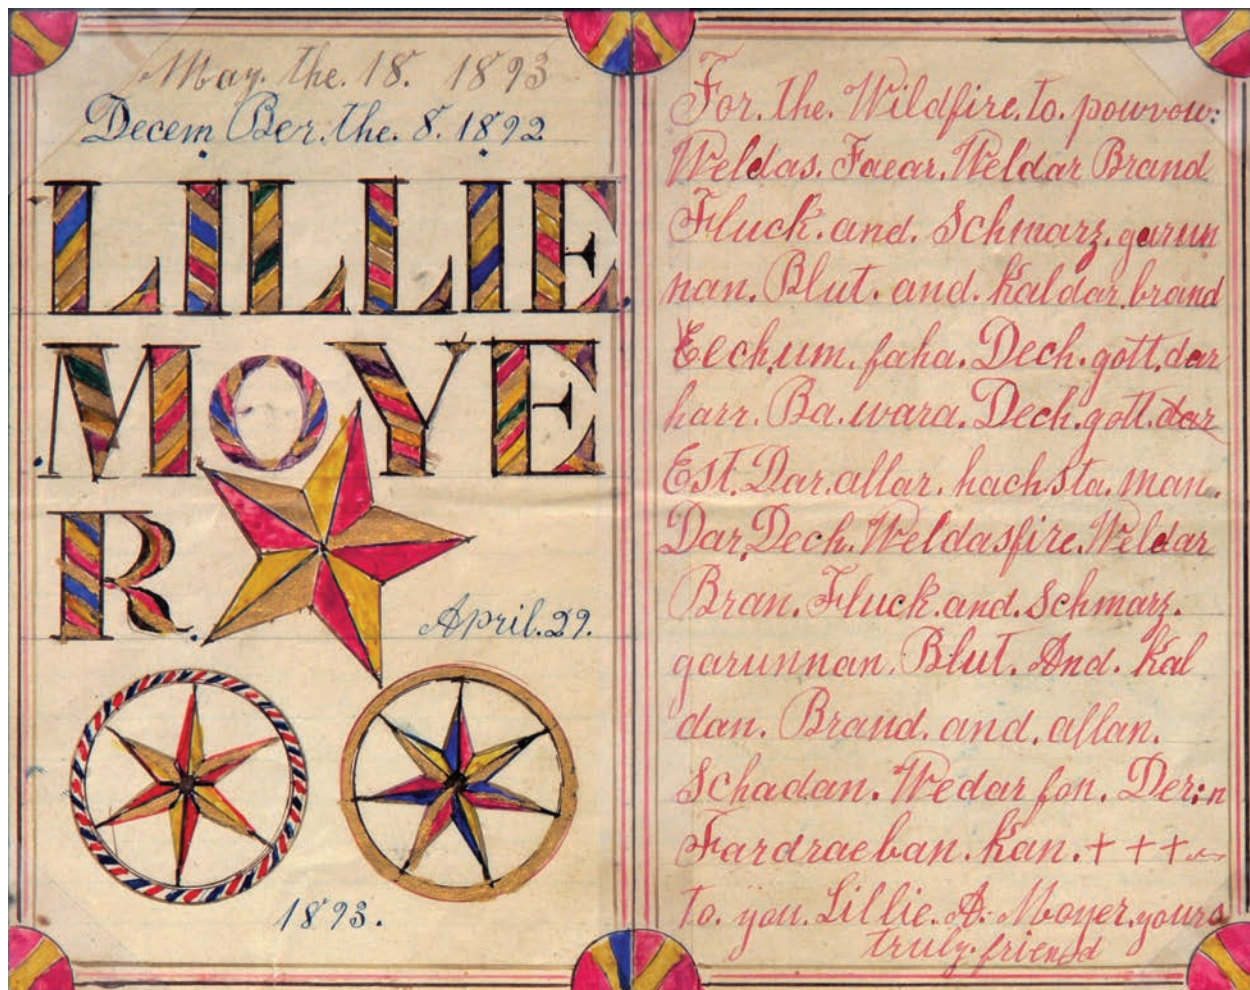 May. the. 18. 1893
Decem Ber. the. 8. 1892
LILLIE
MOYE
R.
April. 29.
1893.
For. the. Wildfire. to. powvow:
Weldas. Faear. Weldar Brand
Fluck. and. Schmarz. garun
nan. Blut. and. Kaldar. brand
Eechum. faha. Dech. gott. dar
harr. Ba. wara. Dech. gott. dar
Est. Dar. allar. hachsta. man.
Dar. Dech. Weldasfire. Weldar
Bran. Fluck. and. Schmarz.
garunnan. Blut. And. Kal
dan. Brand. and. allan.
Schadan. Wedar fon. Der:n
Fardraeban. Kan. + + +
to. you. Lillie. A. Moyer. yours
truly. friend